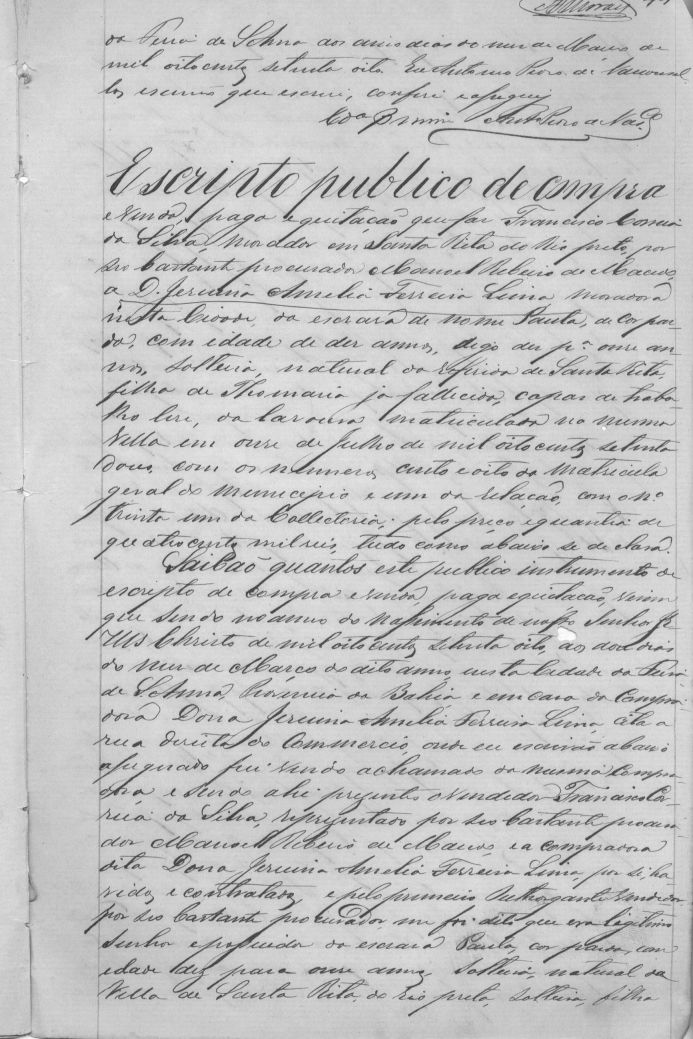 da Feira de Santa Anna aos dias do mez de Março de
mil oito centos setenta oito. Eu Antonio Pedro de
escrivão que escrevi, conferi e assignei
Antº Pedro de
Escripto publico de compra
e venda, paga e quitação que faz Francisco Correia
da Silva morador em Santa Rita do Rio preto, por
seo bastante procurador Manoel Ribeiro de Macedo,
a D. Jesuina Amelia Ferreira Lima, moradora
nesta Cidade, da escrava de nome Paula, de cor par-
da, com idade de dez annos, digo dez pª onze an-
nos, solteira, natural da Freguezia de Santa Rita,
filha de Thomazia ja fallecida, capaz de traba-
lho da lavoura matriculada na mesma
Villa em onze de Julho de mil oito centos setenta
dous, com os numeros cento e oito da matricula
geral do municipio e um da relação, com o nº
trinta um da Collectoria; pelo preço e quantia de
quatro centos mil reis, tudo como abaixo se declara.
Saibão quantos este publico instrumento de
escripto de compra e venda, paga e quitação, virem
que sendo no anno do nascimento de nosso Senhor Je-
zus Christo de mil oito centos setenta oito, aos dous dias
do mez de Março do dito anno, nesta Cidade da Feira
de S. Anna, Provincia da Bahia e em casa da Compra-
dora Dona Jesuina Amelia Ferreira Lima, cita a
rua direita do Commercio, onde eu escrivão abaixo
assignado fui vindo a chamado da mesma Compra-
dora e sendo ahi prezentes o vendedor Francisco Cor-
reia da Silva, reprezentado por seo bastante procura-
dor Manoel Ribeiro de Macedo e a compradora
dita Dona Jesuina Amelia Ferreira Lima, por si, ha-
vidos e contratados, e pelo primeiro Outhorgante vendedor
por seo bastante procurador, me foi dito que era legitimo
senhor e possuidor da escrava Paula, cor parda, com
idade dez para onze annos, solteira, natural da
Villa de Santa Rita do rio preto, solteira, filha